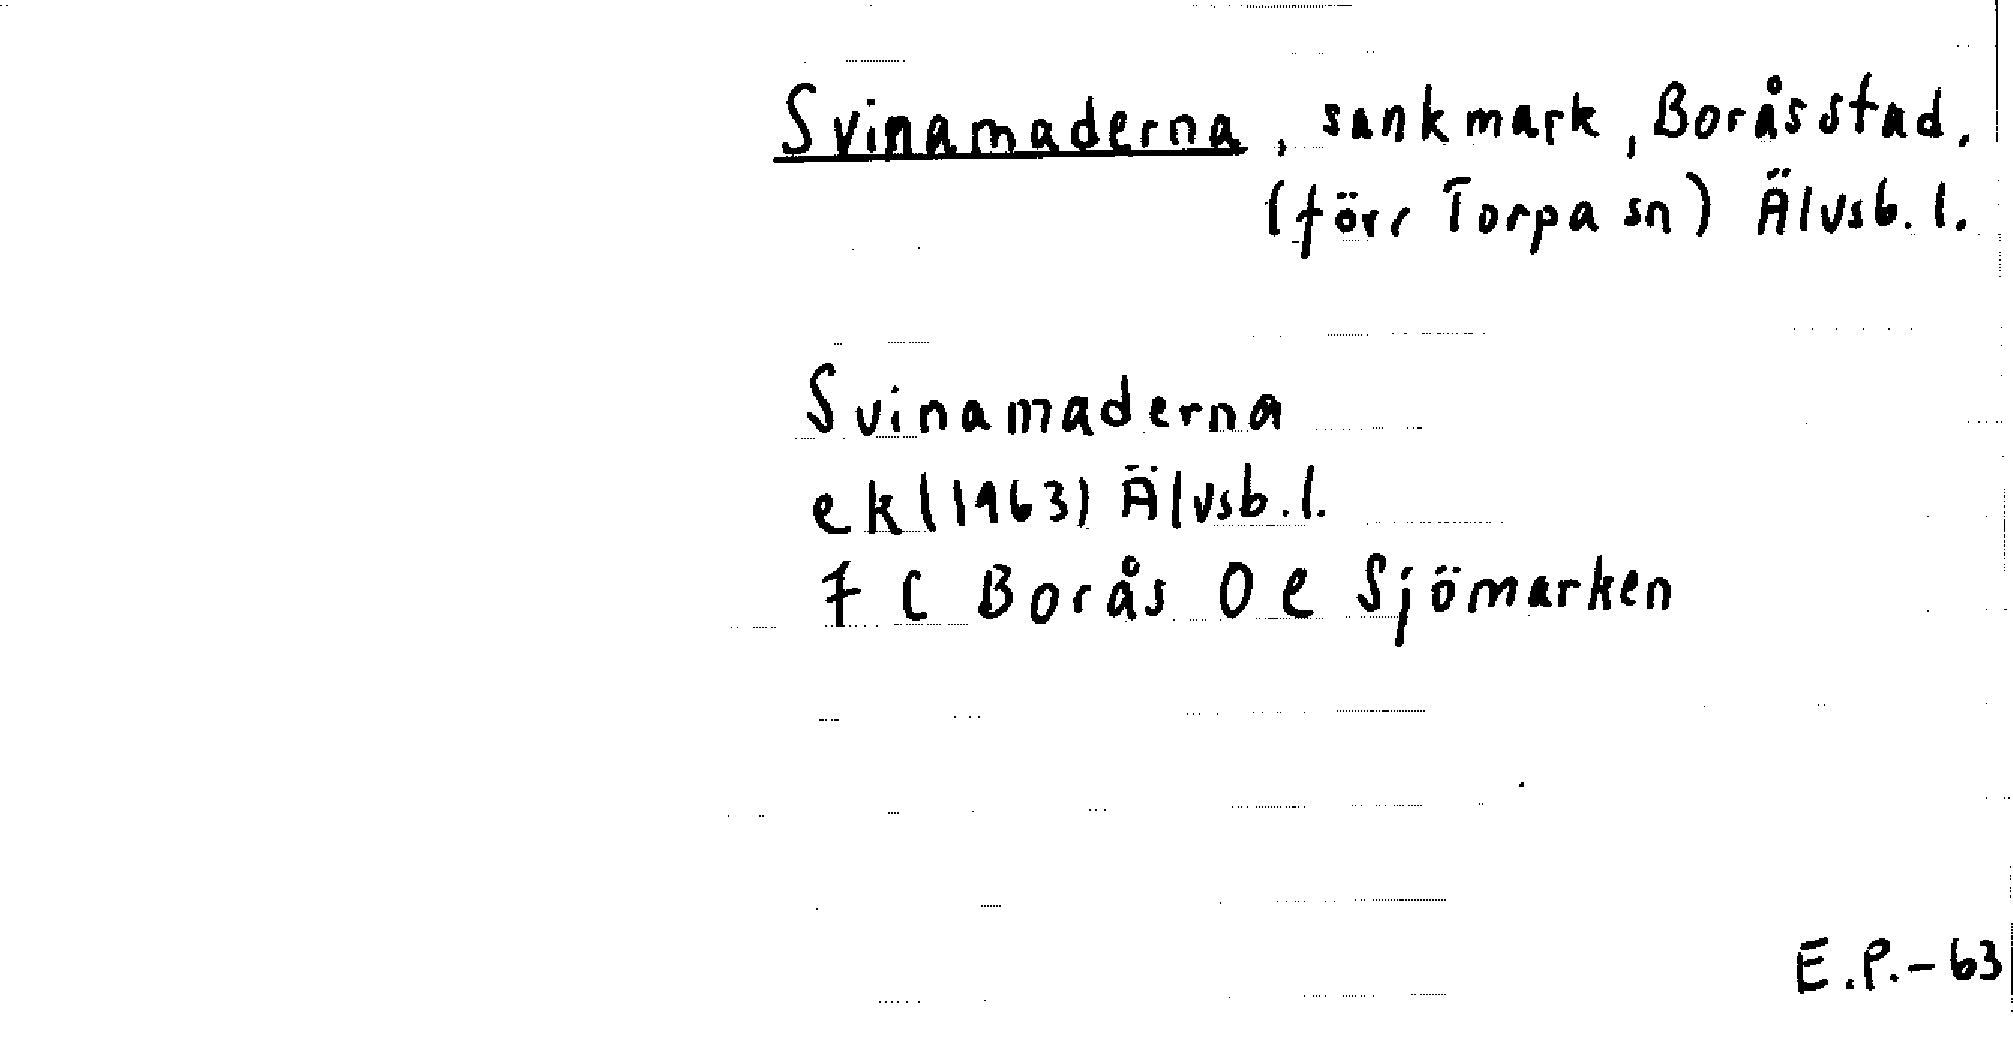 Svinamaderna, sankmark, Borås stad.
(förr Torpa sn) Älvsb. l.
Svinamaderna
ek (1963) Älvsb. l.
7 C Borås 0 e Sjömarken
E.P.-63